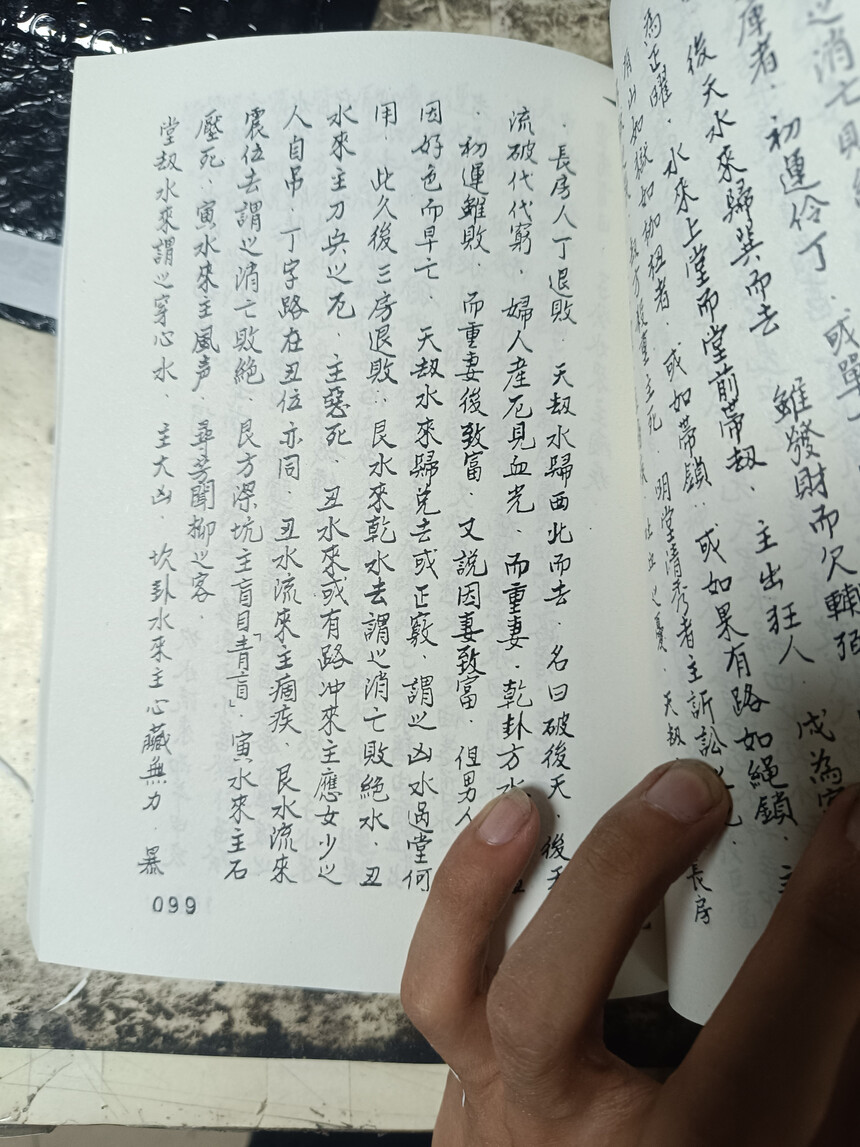 後天水來歸巽而去 雖發財而欠
為正曜．水來上堂而堂前帶刼．主出狂人．成為
有山如獄如枷租者．或如帶鎖．或如果有路如繩鎖．主
主死．明堂清秀者主訴訟 長房
．長房人丁退敗．天刼水歸西北而去．名曰破後天．後天
流破代代窮．婦人產厄見血光．而重妻．乾卦方水
．初運雖敗．而重妻後致富．又說因妻致富．但男人
因好色而早亡．天刼水來歸兌去或正竅．謂之凶水過堂何
用．此久後三房退敗．艮水來乾水去謂之消亡敗絕水．丑
水來主刀兵之厄．主惡死．丑水來或有路冲來主應女少之
人自吊．丁字路在丑位亦同．丑水流來主痼疾．艮水流來
震位去謂之消亡敗絕．艮方深坑主盲目「青盲」．寅水來主石
壓死．寅水來主風声．尋芳聞柳之客．
堂刼水來謂之穿心水．主大凶．坎卦水來主心臟無力．暴
099